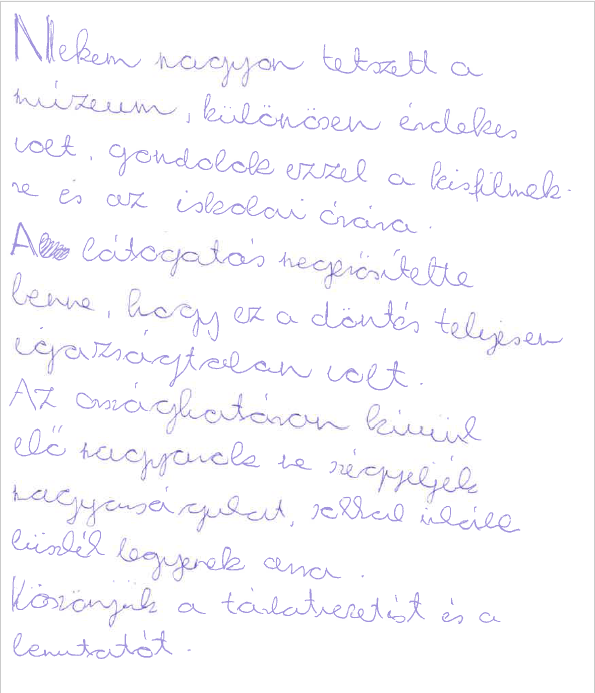 Nekem nagyon tetszett a
múzeum, különösen érdekes
volt, gondolok ezzel a kisfilmek-
re és az iskolai órára.
A látogatás megerősítette
benne, hogy ez a döntés teljesen
igazságtalan volt.
Az országhatáron kívül
élő magyarok ne szégyeljék
magyarságukat, sokkal inkább
büszkék legyenek arra.
Köszönjük a tárlatvezetést és a
bemutatót.